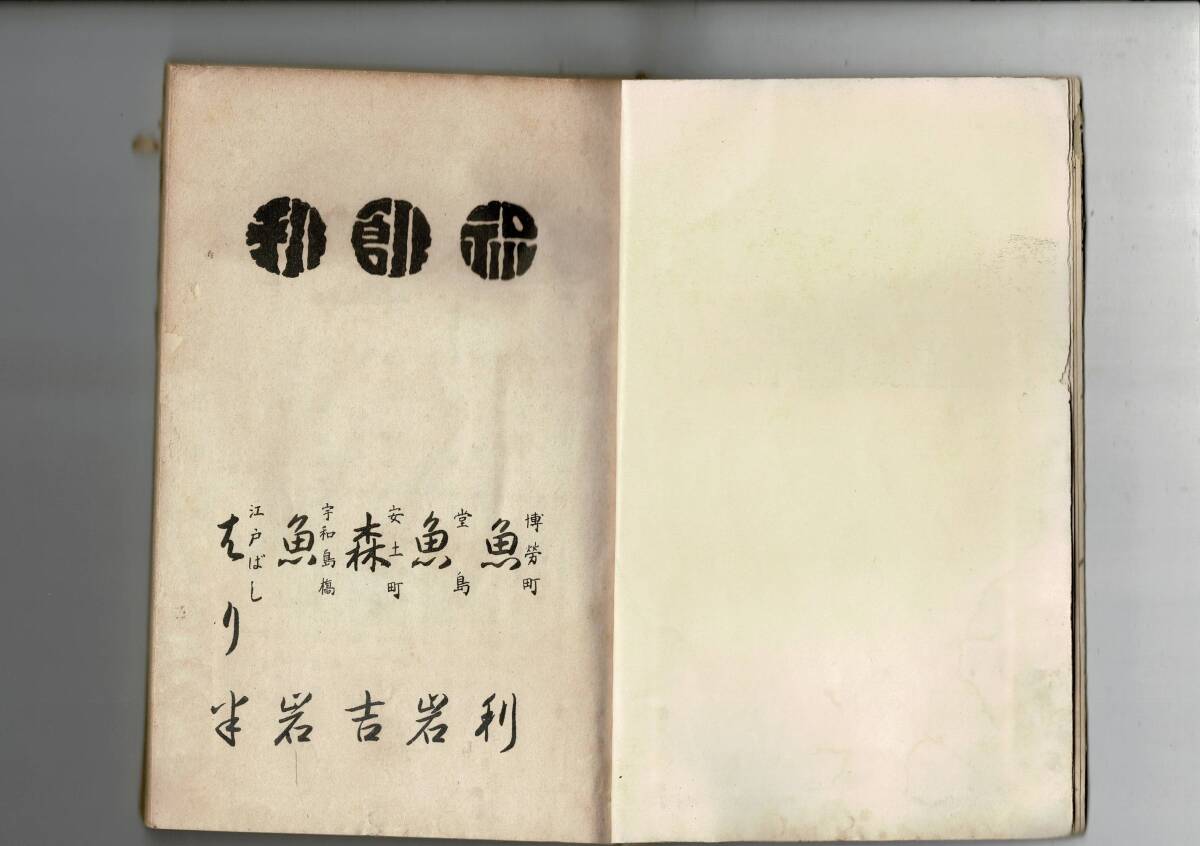 祝創刊
博勞町
魚利
堂島
魚岩
安土町
森吉
宇和島橋
魚岩
江戸ばし
はり半